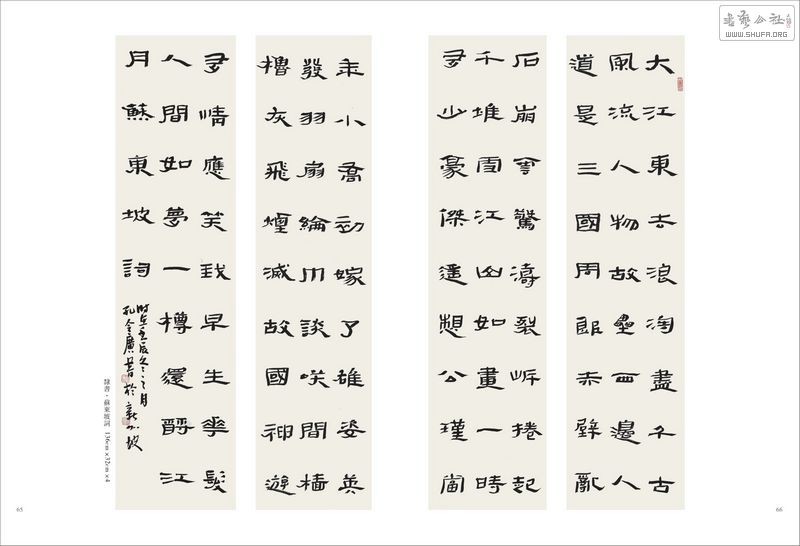 書藝公社
WWW.SHUFA.ORG
大江東去浪淘盡千古
風流人物故壘西邊人
道是三國周郎赤壁亂
石崩雲驚濤裂岸捲起
千堆雪江山如畫一時
多少豪傑遙想公瑾當
年小喬初嫁了雄姿英
發羽扇綸巾談笑間檣
櫓灰飛煙滅故國神遊
多情應笑我早生華髮
人間如夢一樽還酹江
月蘇東坡詞
時在壬辰冬月
孔令廣書於新加坡
隸書·蘇東坡詞 136cm×32cm×4
65
66